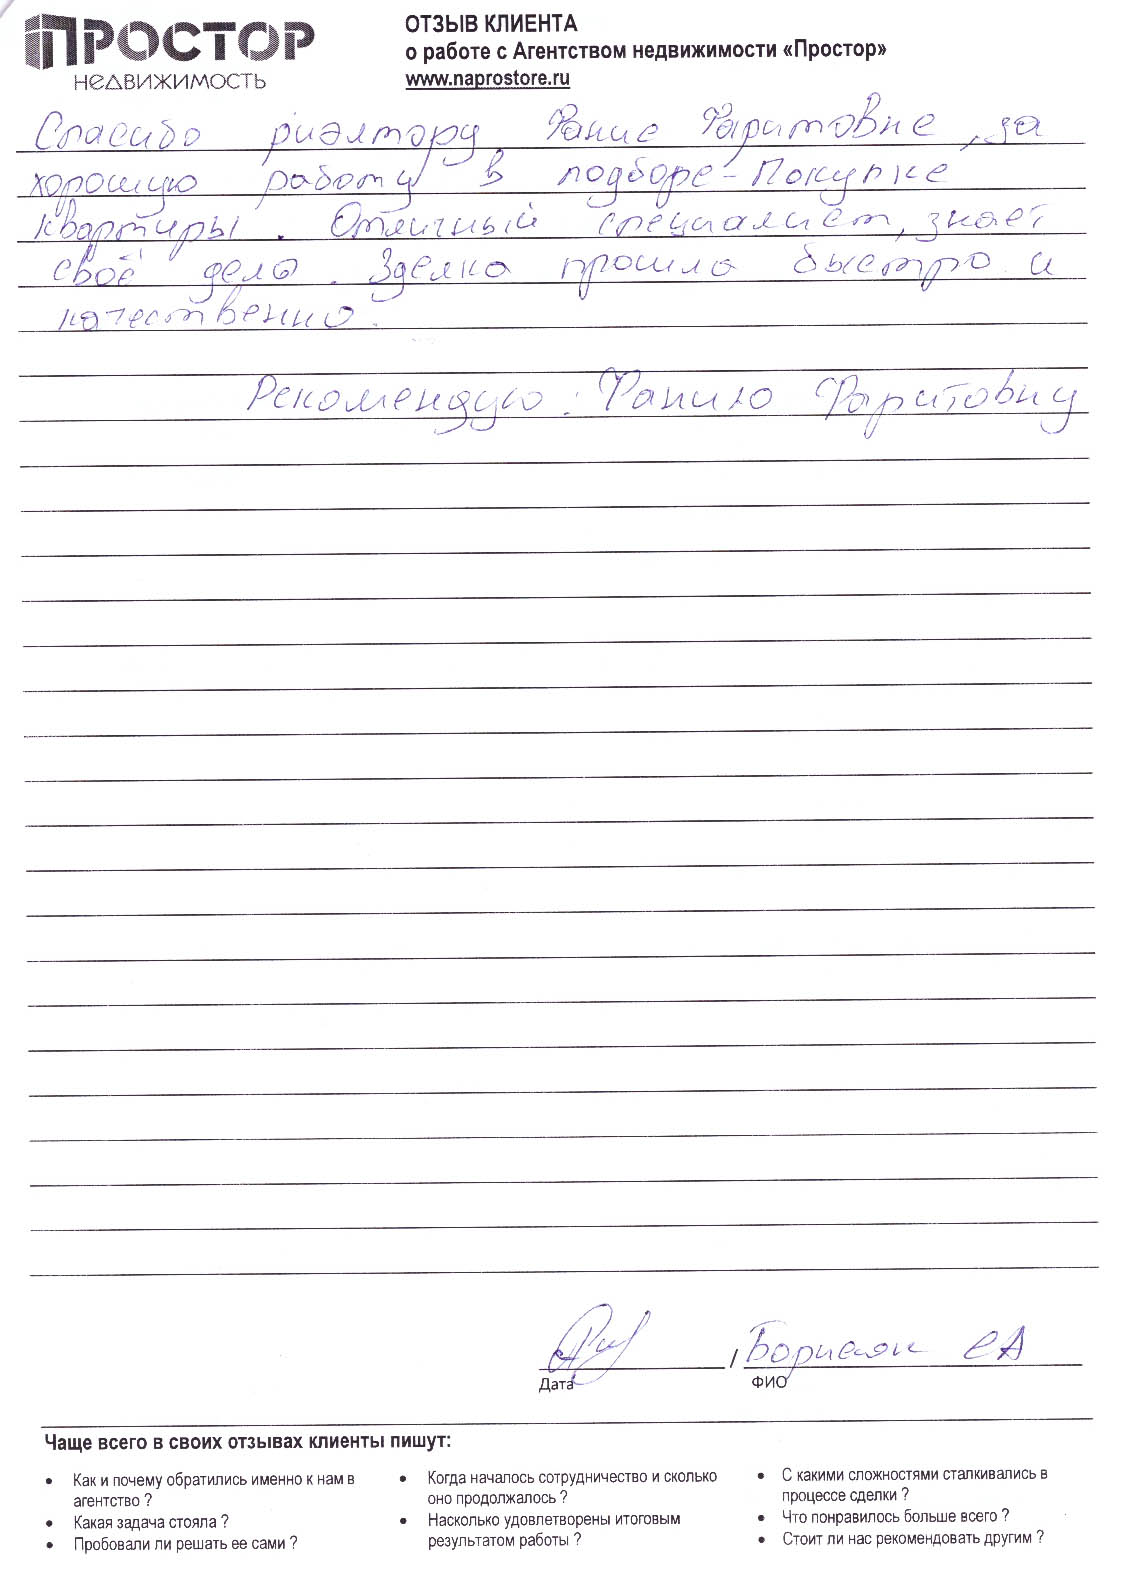 ПРОСТОР
НЕДВИЖИМОСТЬ
ОТЗЫВ КЛИЕНТА
о работе с Агентством недвижимости «Простор»
www.naprostore.ru
Спасибо риэлтору Фание Фаритовне, за
хорошую работу в подборе-Покупке
квартиры. Отличный специалист, знает
своё дело. Зделка прошла быстро и
качественно.
Рекомендую: Фанию Фаритовну
/ СА
Дата ФИО
Чаще всего в своих отзывах клиенты пишут:
• Как и почему обратились именно к нам в
агентство ?
• Какая задача стояла ?
• Пробовали ли решать ее сами ?
• Когда началось сотрудничество и сколько
оно продолжалось ?
• Насколько удовлетворены итоговым
результатом работы ?
• С какими сложностями сталкивались в
процессе сделки ?
• Что понравилось больше всего ?
• Стоит ли нас рекомендовать другим ?